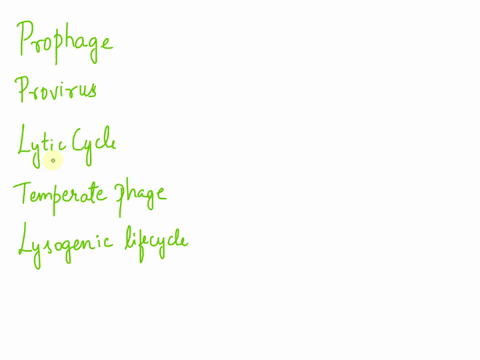 Prophage
Provirus
Lytic Cycle
Temperate phage
Lysogenic lifecycle